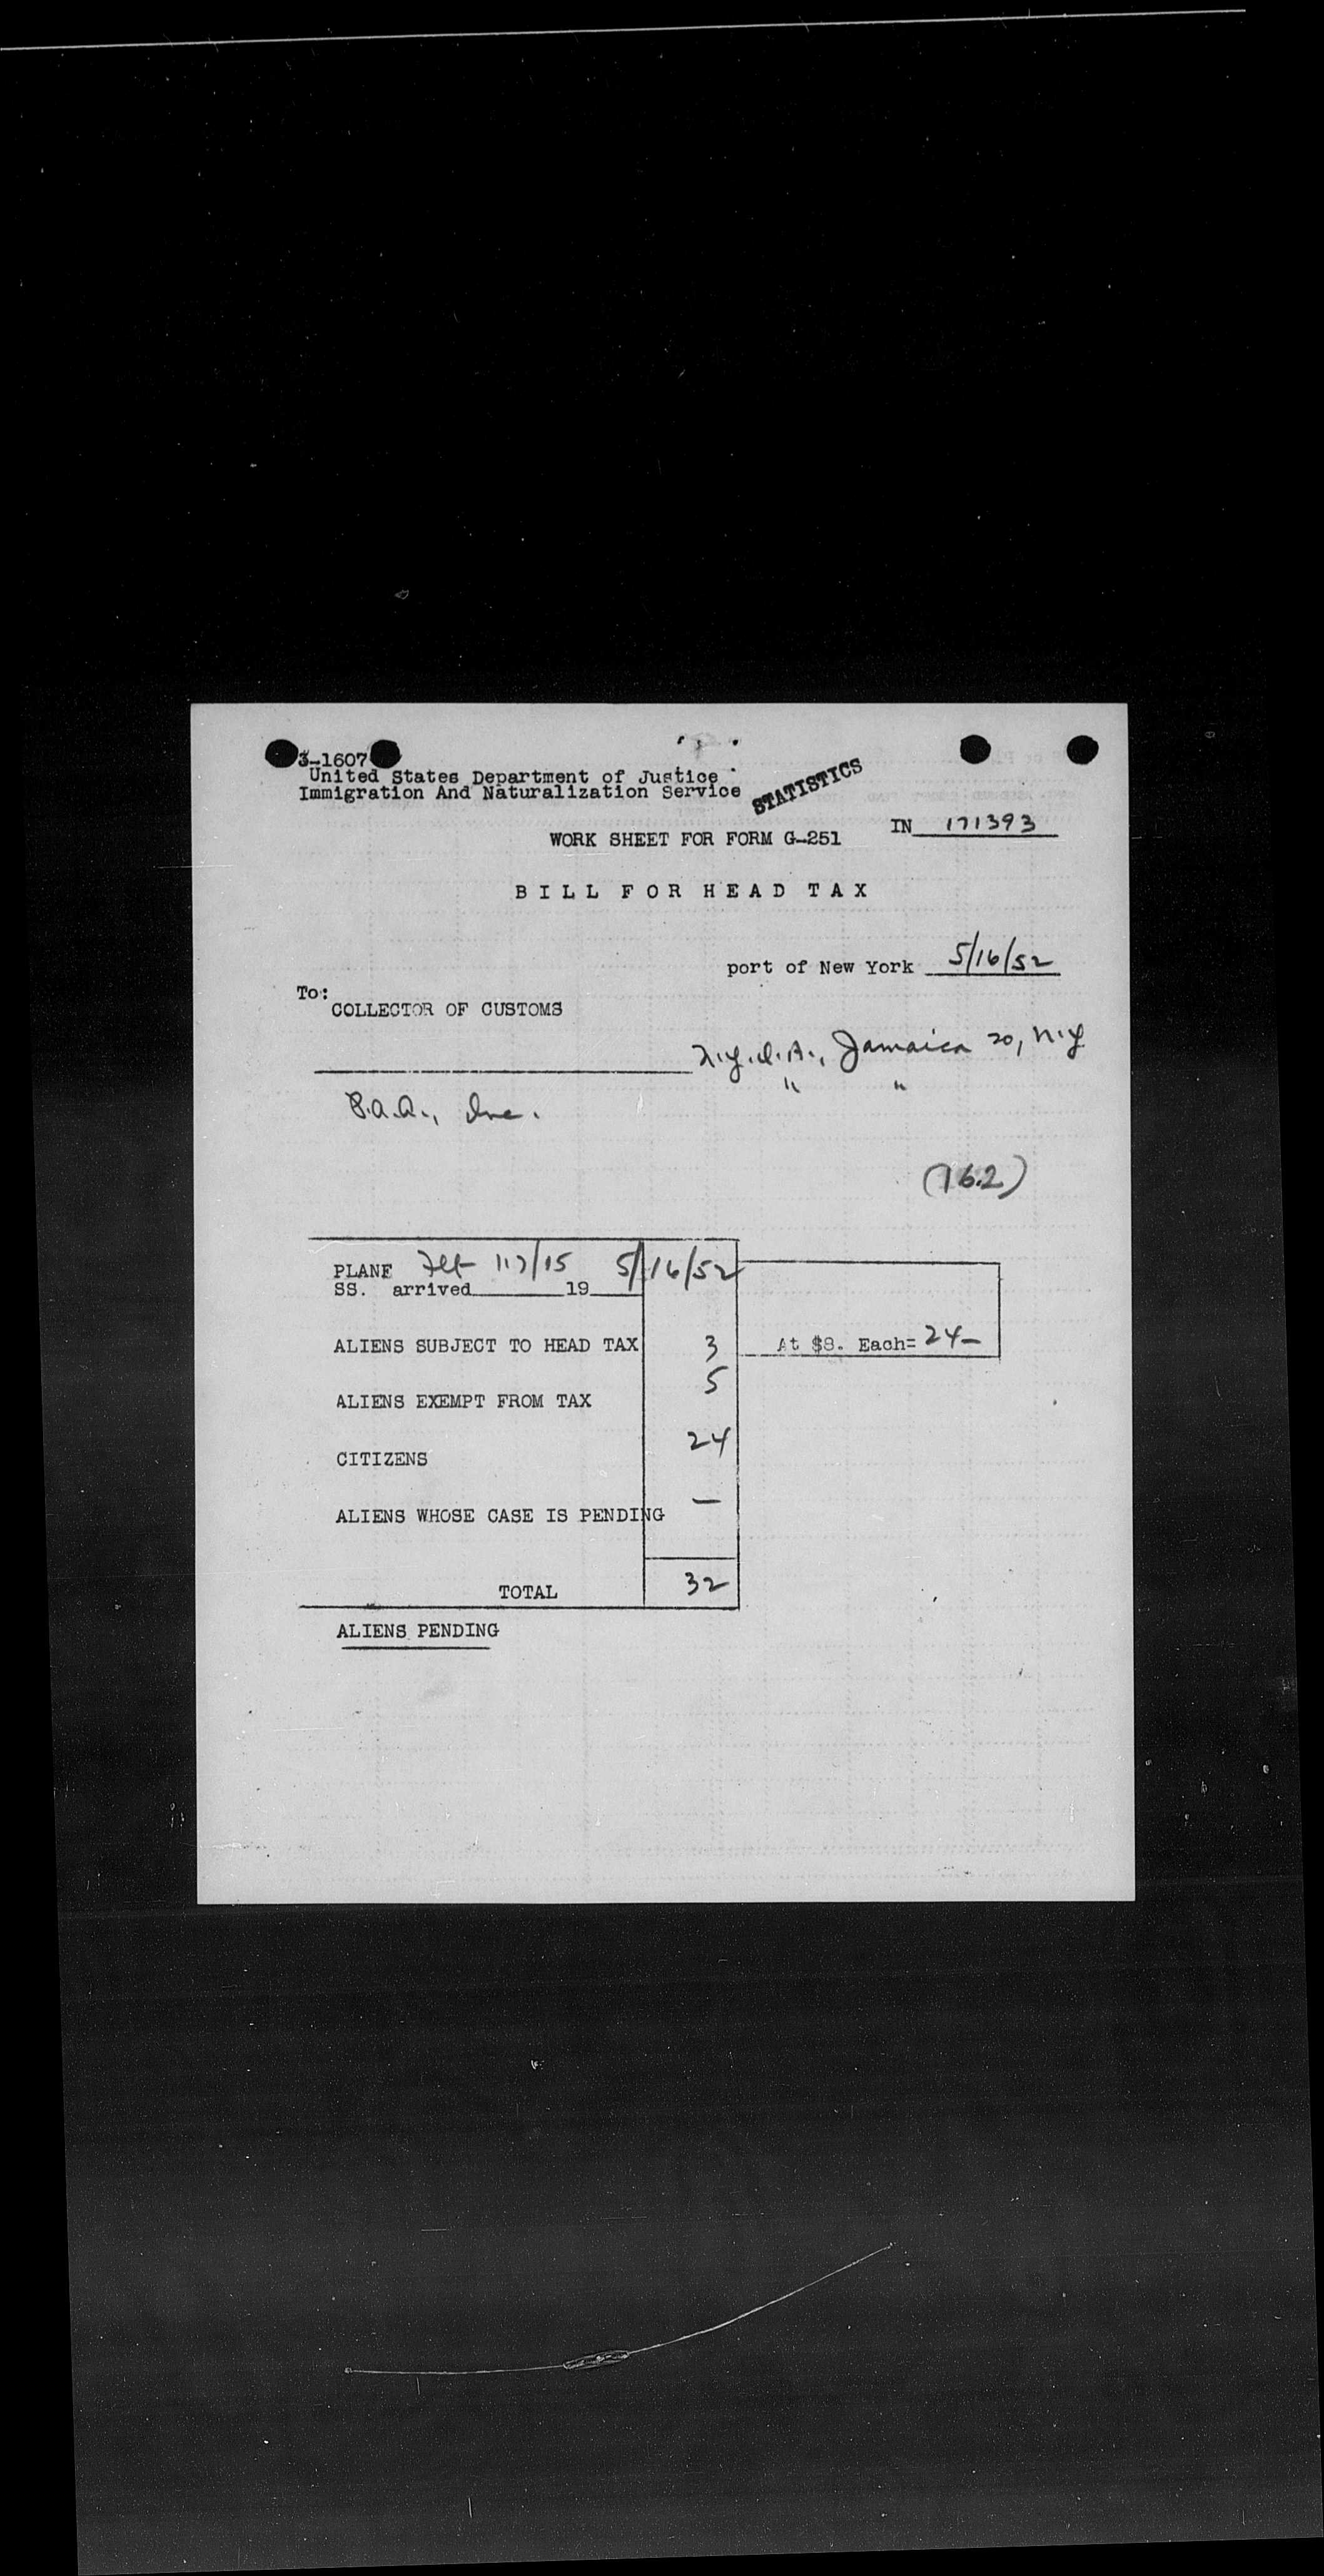 3-1607
United States Department of Justice
Immigration And Naturalization Service
STATISTICS
IN 171393
WORK SHEET FOR FORM G-251
BILL FOR HEAD TAX
port of New York 5/16/52
To:
COLLECTOR OF CUSTOMS
N.Y.I.A., Jamaica 20, N.Y
" "
Inc.
(16.2)
PLANE Flt 117/15 5/16/52
SS. arrived 19
ALIENS SUBJECT TO HEAD TAX 3 At $8. Each= 24-
ALIENS EXEMPT FROM TAX 5
CITIZENS 24
ALIENS WHOSE CASE IS PENDING —
TOTAL 32
ALIENS PENDING